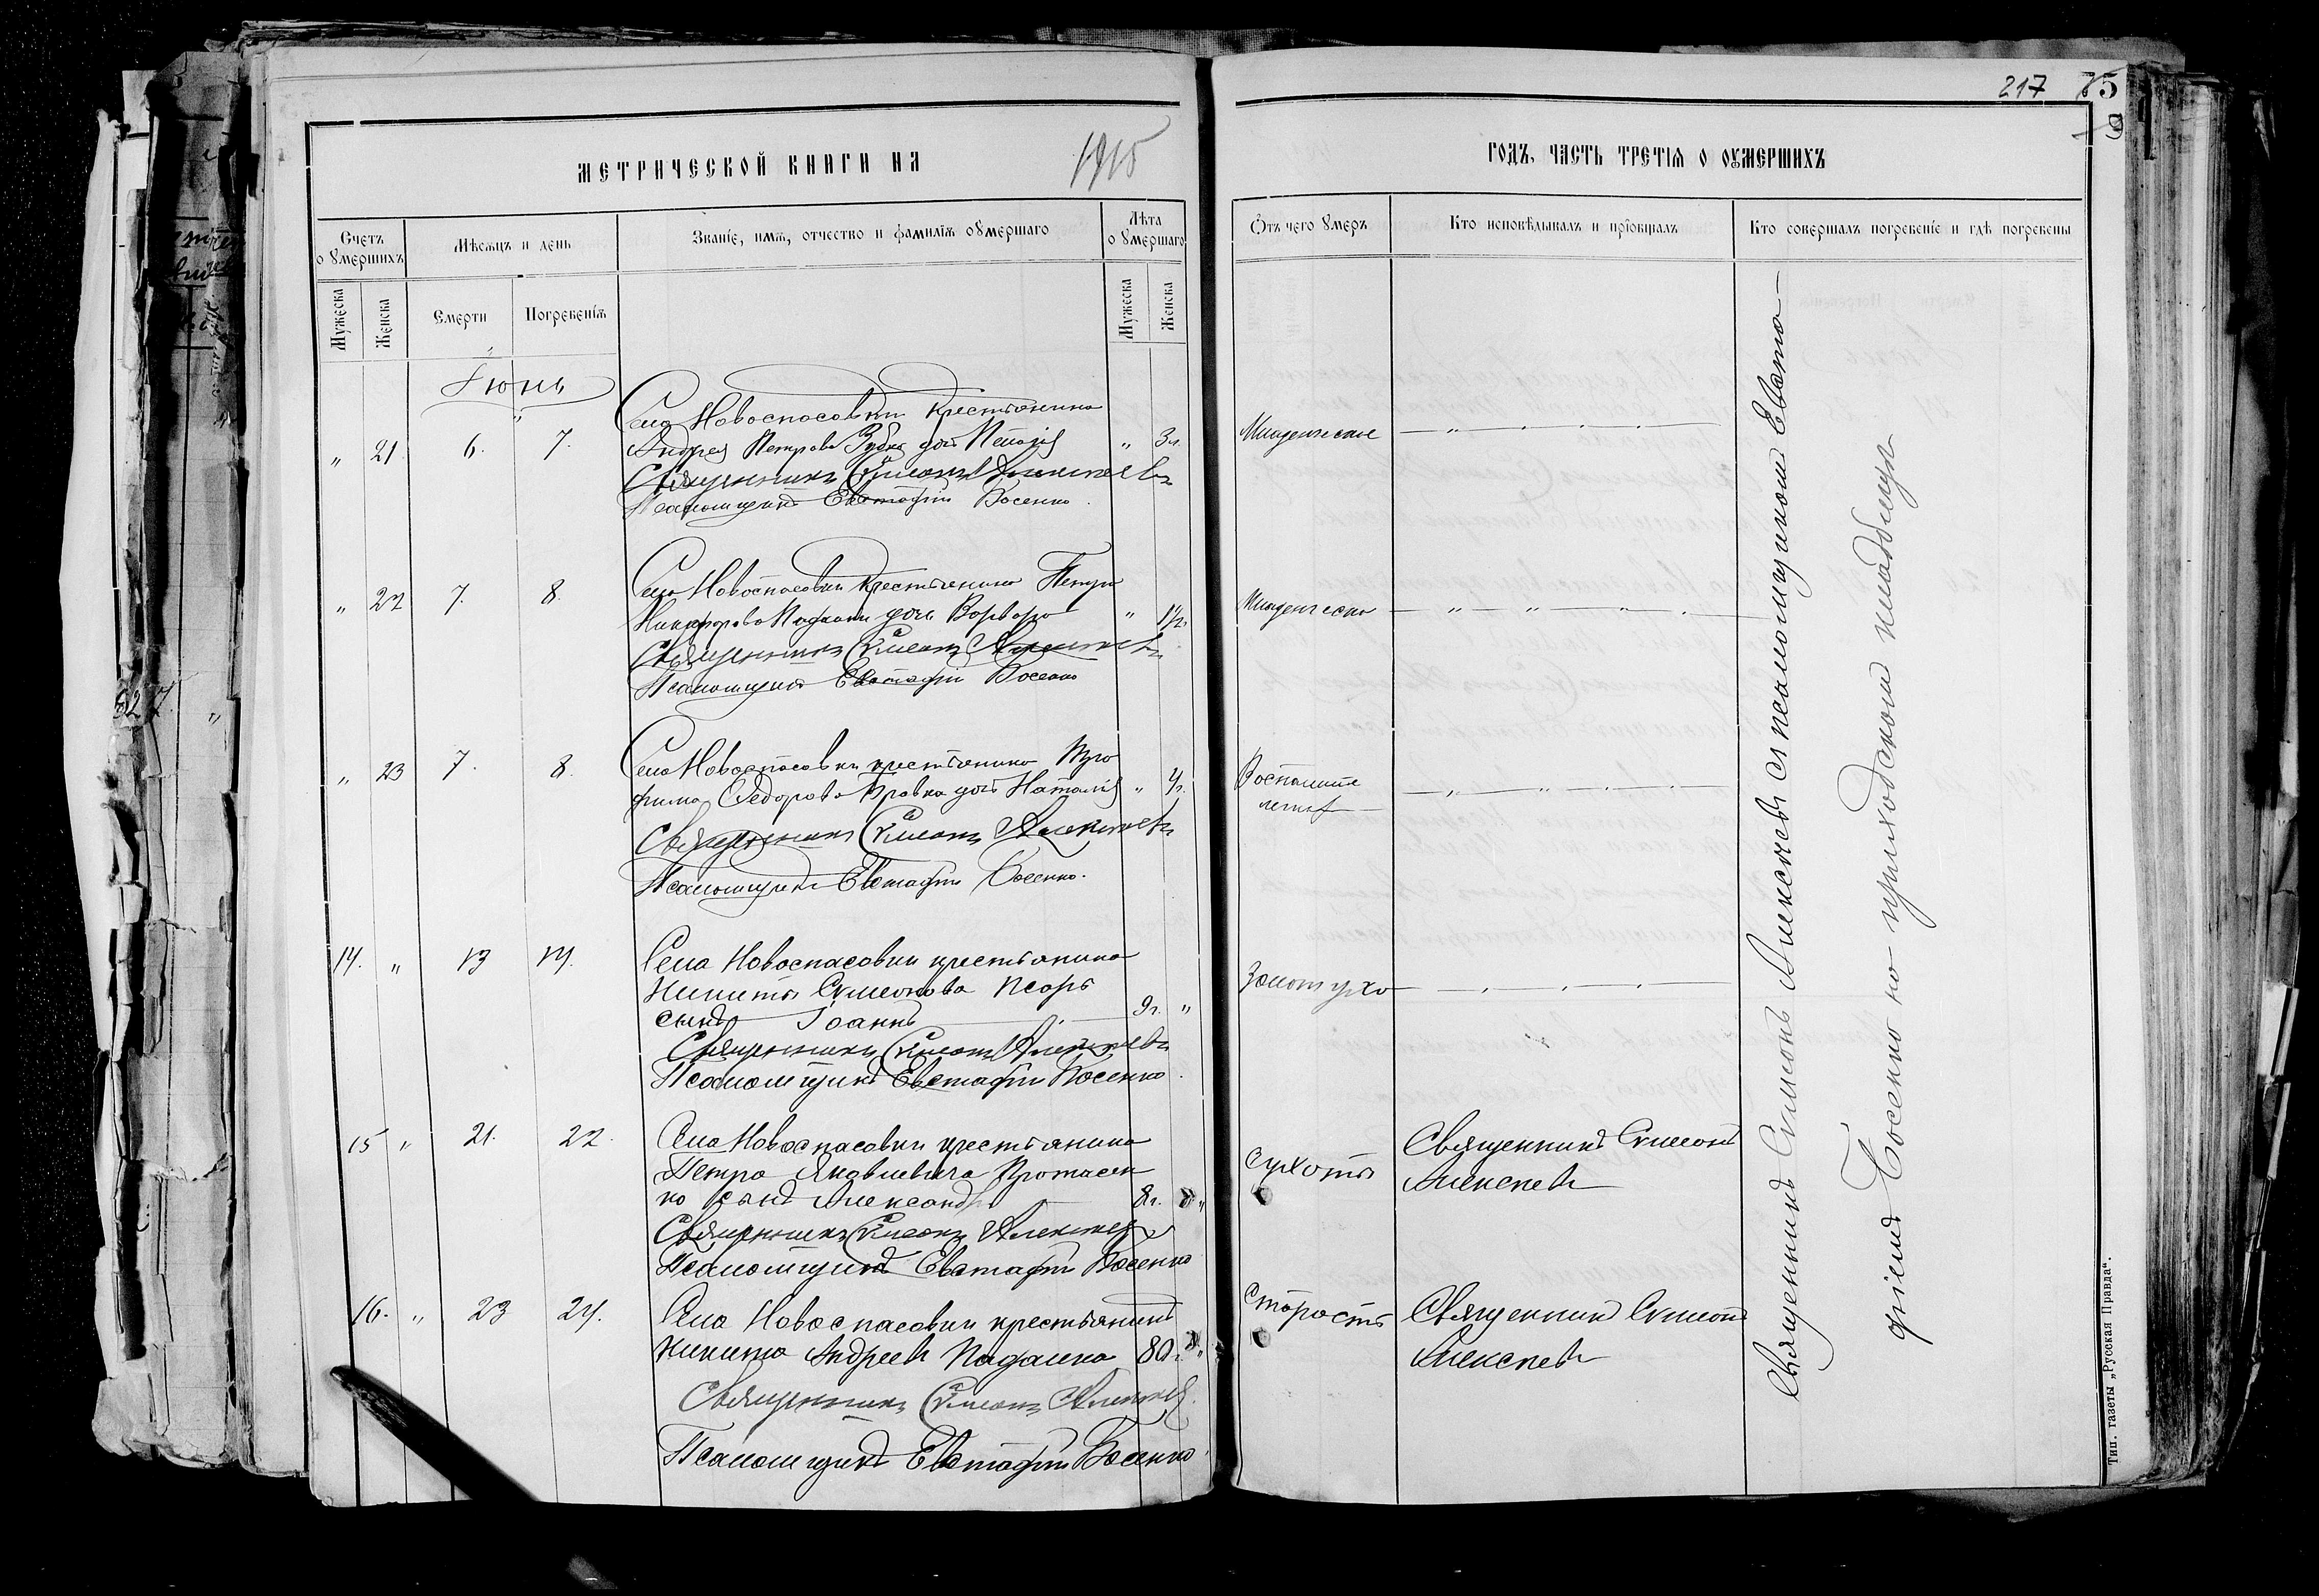 МЕТРИЧЕСКОЙ КНИГИ НА 1915
Счетъ о ѹмершихъ
Мѣсяцъ и день
Званіе, имя, отчество и фамилія ѹмершаго
Лѣта ѹмершаго
Мужеска
Женска
Смерти
Погребенія
Мужеска
Женска
Іюнь
" 21. 6. 7.
Села Новоспасовки крестьянина
Андрея Петрова дочь " 3 г.
Священникъ Симеонъ Алексѣевъ
Псаломщикъ Евстафій Босенко.
" 22 7. 8.
Села Новоспасовки крестьянина Петра
Никифорова дочь Варвара "
Священникъ Симеонъ Алексѣевъ
Псаломщикъ Евстафій Босенко
" 23 7. 8.
Села Новоспасовки крестьянина Тро
фима Ѳедорова дочь Наталія "
Священникъ Симеонъ Алексѣевъ
Псаломщикъ Евстафій Босенко.
14. " 13 14.
Села Новоспасовки крестьянина
Никиты Симеонова
сынъ Іоаннъ 9 г. "
Священникъ Симеонъ Алексѣевъ
Псаломщикъ Евстафій Босенко.
15 " 21. 22.
Села Новоспасовки крестьянина
Петра Яковлевича Протасен
ко сынъ Александръ 8 г. "
Священникъ Симеонъ Алексѣевъ
Псаломщикъ Евстафій Босенко
16. " 23 24.
Села Новоспасовки крестьянинъ
Никита Андреевъ Падалка 80 г. "
Священникъ Симеонъ Алексѣевъ
Псаломщикъ Евстафій Босенко.
217 75
ГОДЪ, ЧАСТЬ ТРЕТІЯ О ОУМЕРШИХЪ
Отъ чего ѹмеръ
Кто исповѣдывалъ и пріобщалъ
Кто совершалъ погребеніе и гдѣ погребены
Младенческая
Младенческая
Воспаленіе
легкихъ
Золотуха
Сухоты
Священникъ Симеонъ
Алексѣевъ
Старость
Священникъ Симеонъ
Алексѣевъ
Священникъ Симеонъ Алексѣевъ съ псаломщикомъ Евста
фіемъ Босенко на приходскомъ кладбищѣ
Тип. газеты „Русская Правда“.